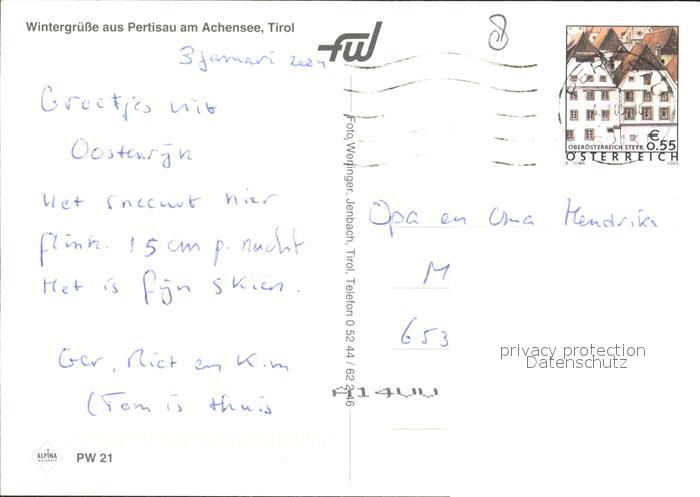 Wintergrüße aus Pertisau am Achensee, Tirol
3 Januari 2004
Groetjes uit
Oostenrijk
Het sneeuwt hier
flink. 15 cm p. nacht
Het is fijn skiën.
Ger, Riet en Kim
(Tom is thuis
ALPINA
PW 21
Foto Weninger, Jenbach, Tirol, Telefon 0 52 44 / 62 2 16
fwl
€
0.55
OBERÖSTERREICH STEYR
ÖSTERREICH
Opa en Oma Hendrikx
M
653
A14UU
privacy protection
Datenschutz